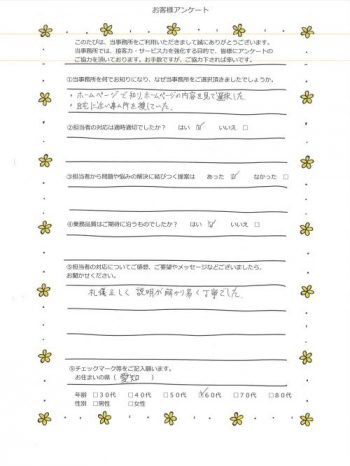 お客様アンケート
このたびは、当事務所をご利用いただきまして誠にありがとうございます。
当事務所では、接客力・サービス力を強化する目的で、皆様にアンケートの
ご協力を頂いております。お手数ですが、ご協力下されば幸いです。
①当事務所を何でお知りになり、なぜ当事務所をご選択頂きましたでしょうか。
・ホームページで知り、ホームページの内容を見て選択した
・自宅に近い事ム所を捜していた。
②担当者の対応は適時適切でしたか? はい ☑ いいえ □
③担当者から問題や悩みの解決に結びつく提案は あった ☑ なかった □
④業務品質はご期待に沿うものでしたか? はい ☑ いいえ □
⑤担当者の対応についてご感想、ご要望やメッセージなどございましたら、
お聞かせください。
礼儀正しく 説明が解かり易く丁寧でした。
⑥チェックマーク等をご記入願います。
お住まいの県(愛知)
年齢 □30代 □40代 □50代 ☑60代 □70代 □80代
性別 □男性 □女性